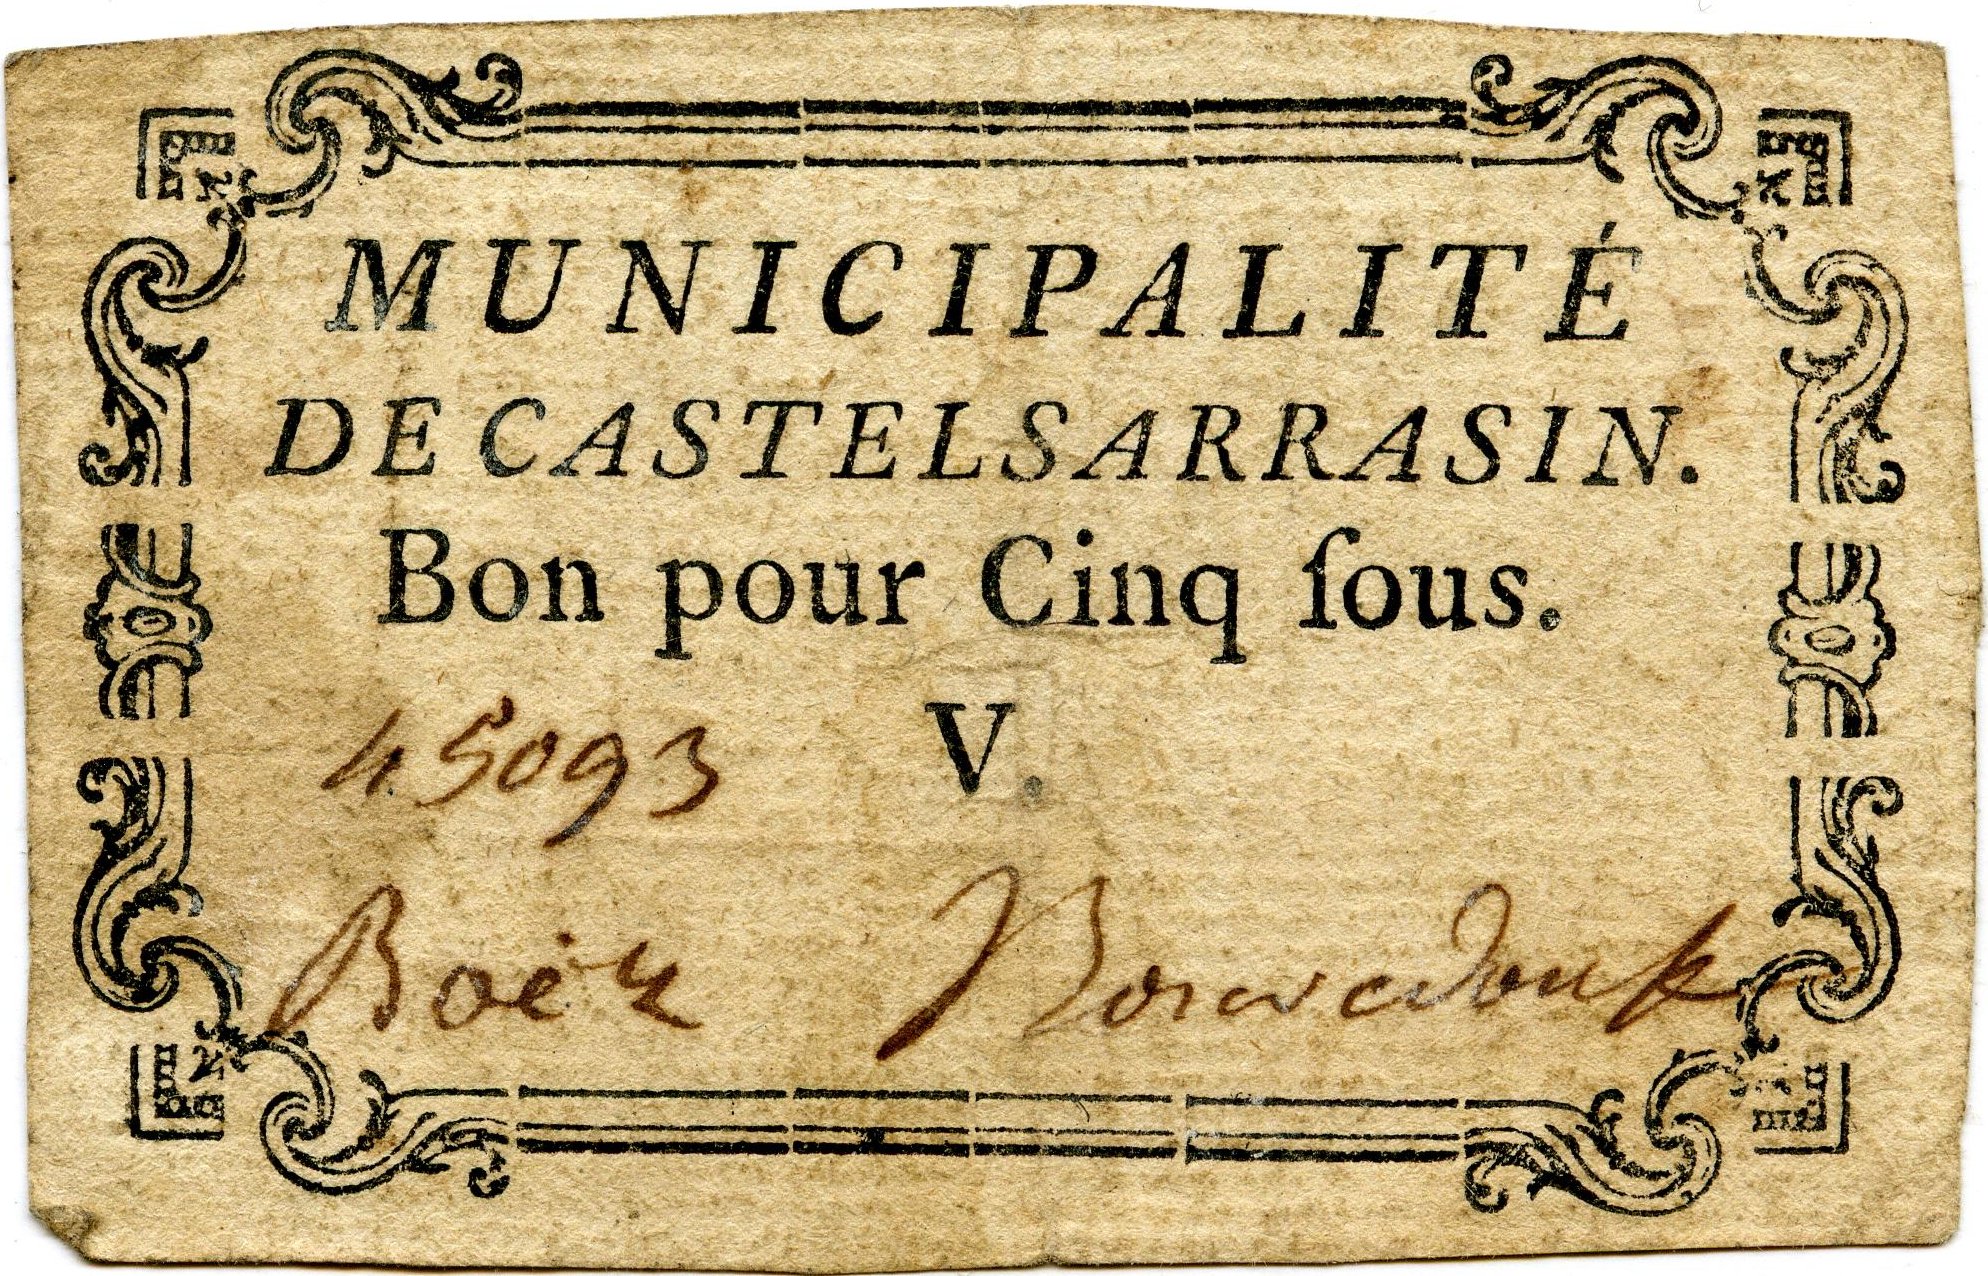 MUNICIPALITÉ
DE CASTÉLSARRASIN.
Bon pour Cinq ſous.
45093 V.
Boëz